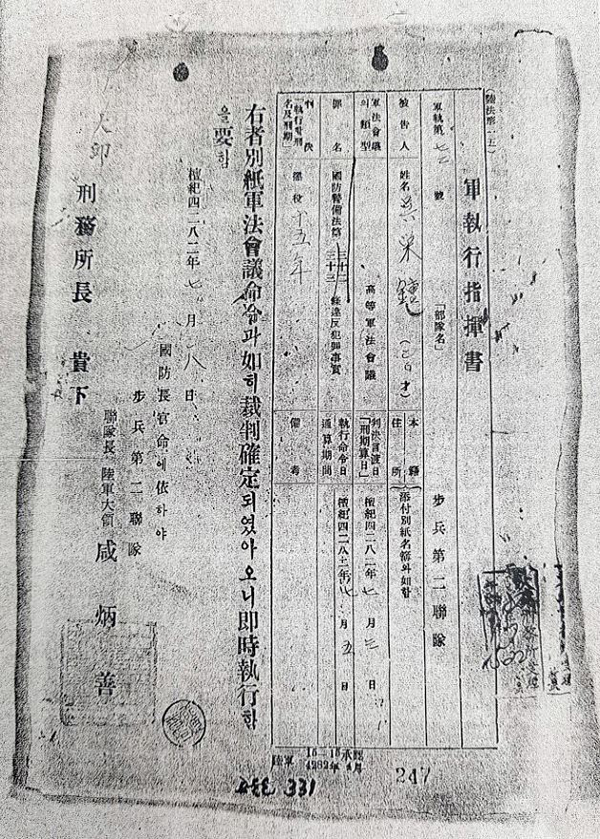 (陸法第一五)
軍執行指揮書
軍執第七二號
「部隊名」
步兵第二聯隊
被告人
姓名
(二〇才)
本籍
住所
添付別紙名簿와如함
軍法會議의類型
高等軍法會議
判決言渡日「刑期算日」
檀紀四二八二年七月三日
罪名
國防警備法第三十二 三十三條違反犯罪事實
執行命令日
檀紀四二八二年
月五日
通算期間
判決「執行할刑名及刑期」
懲役十五年
備考
右者別紙軍法會議命令과如히裁判確定되였아오니即時執行함
을要함
檀紀四二八二年七月
八日
國防長官命에依하야
步兵第二聯隊
聯隊長 陸軍大領 咸炳善
刑務所長 貴下
陸軍
4282年4月
247
331